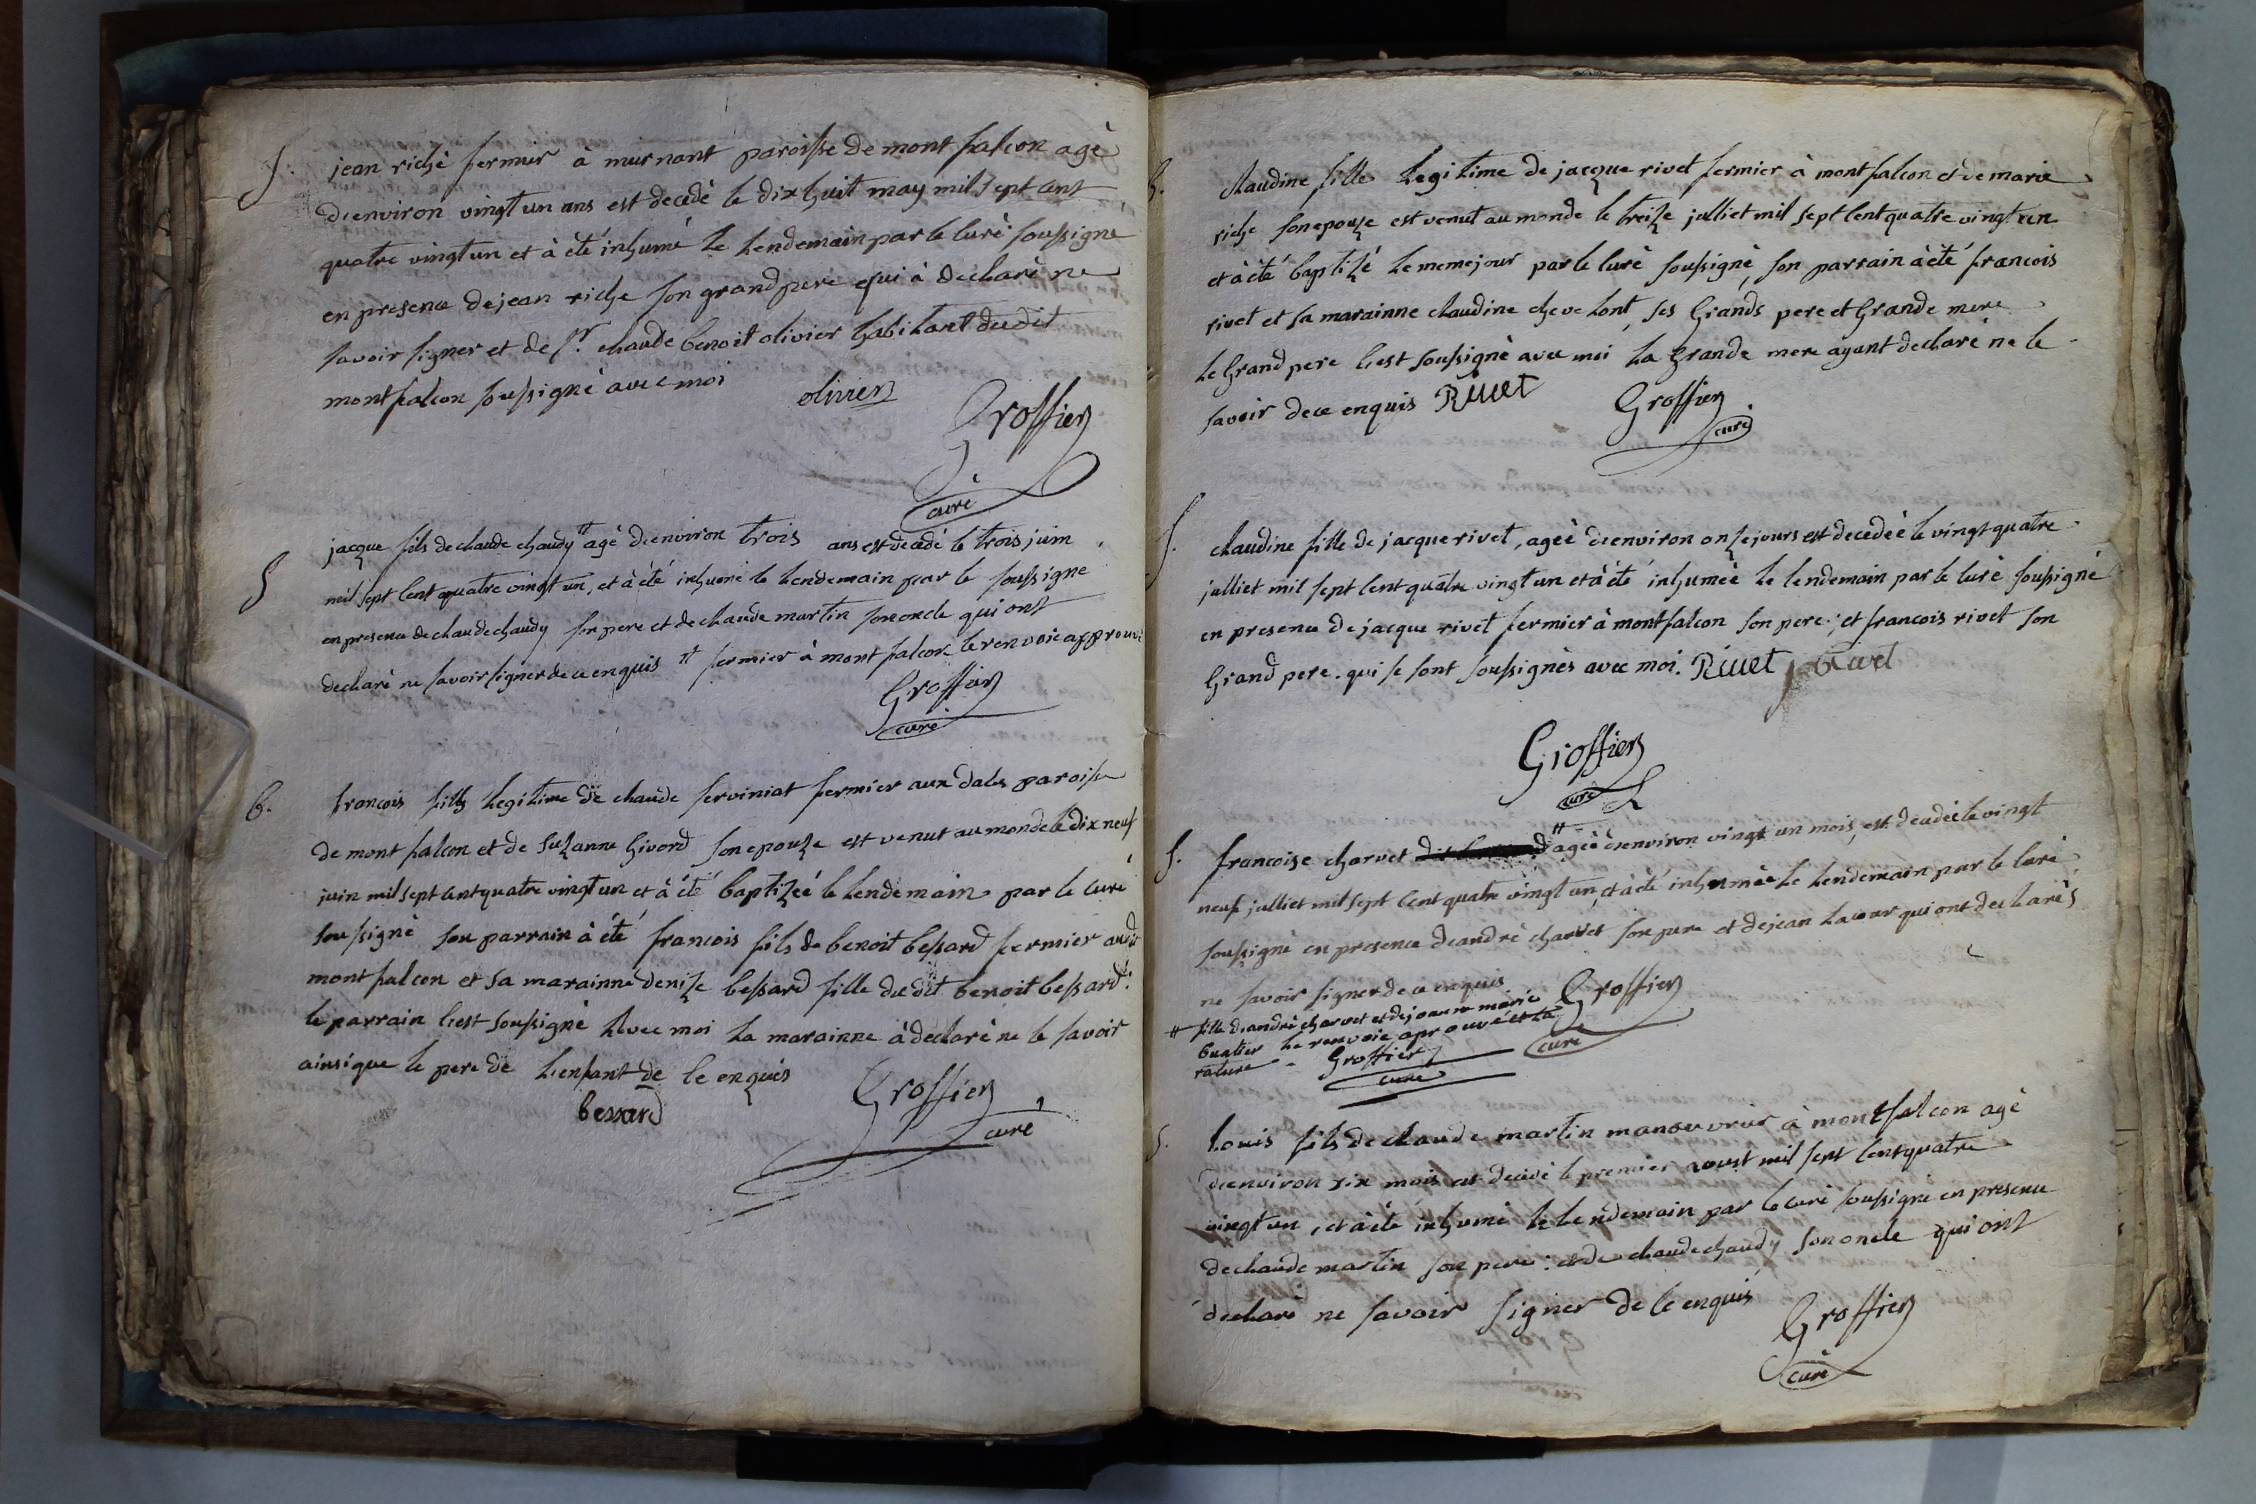 S. jean riche fermier à murnant paroisse de mont falcon agè
d'environ vingt un ans est decedè le dix huit may mil sept cent
quatre vingt un et à été inhumé le lendemain par le curè soussignè
en presence de jean riche son grand pere qui à declarè ne
savoir signer et de Sr. claude benoit olivier habitant du dit
montfalcon soussignè avec moi
olivier
Groffier
curè
S jacque fils de claude chaudy # agè d'environ trois ans est decedé le trois juin
mil sept cent quatre vingt un, et à été inhumé le lendemain par le soussigne
en presence de claude chaudy son pere et de claude martin son oncle qui ont
declarè ne savoir signer de ce enquis # fermier à mont falcon le renvoie approuvé
Groffier
curé
B. francois fils legitime de claude serviniat fermier aux dales paroisse
de mont falcon et de suzanne hivord son epouze est venut au monde le dix neuf
juin mil sept cent quatre vingt un et à été baptizèé le lendemain par le curé
soussignè son parrain à été francois fils de benoit bessard fermier audit
montfalcon et sa marainne denize bessard fille du dit benoit bessard.
le parrain s'est soussignè avec moi la marainne à declarè ne le savoir
ainsi que le pere de l'enfant de ce enquis
bessard
Groffier
curé
B. claudine fille legitime de jacque rivet fermier à montfalcon et de marie
riche son epouze est venut au monde le treize julliet mil sept cent quatre vingt un
et à été baptizé le meme jour par le curè soussignè, son parrain à été francois
rivet et sa marainne claudine chevelont, ses Grands pere et Grande mere
le Grand pere s'est soussignè avec moi la Grande mere ayant declarè ne le
savoir de ce enquis Rivet
Groffier
curé
S. claudine fille de jacque rivet, ageè d'environ onze jours est decedèè le vingt quatre
julliet mil sept cent quatre vingt un et à été inhumèè le lendemain par le curè soussignè
en presence de jacque rivet fermier à montfalcon son pere; et francois rivet son
Grand pere. qui se sont soussignès avec moi. Rivet j Rivet
Groffier
curé
S. francoise charvet # ageè d'environ vingt un mois, est decedèè le vingt
neuf julliet mil sept cent quatre vingt un, et à été inhumèè le lendemain par le curè
soussignè en presence d'andrè charvet son pere et de jean lacour qui ont declarès
ne savoir signer de ce enquis
Groffier
curé
# fille d'andrè charvet et de jeanne marie
buatier le renvoie aprouvé et la
rature
Groffier
curé
S. Louis fils de claude martin manouvrier à montfalcon agè
d'environ six mois est decedé le premier aoust mil sept cent quatre
vingt un, et à été inhumé le lendemain par le curé soussignè en presence
de claude martin son pere: et de claude chaudy son oncle qui ont
declarè ne savoir signer de ce enquis
Groffier
curè